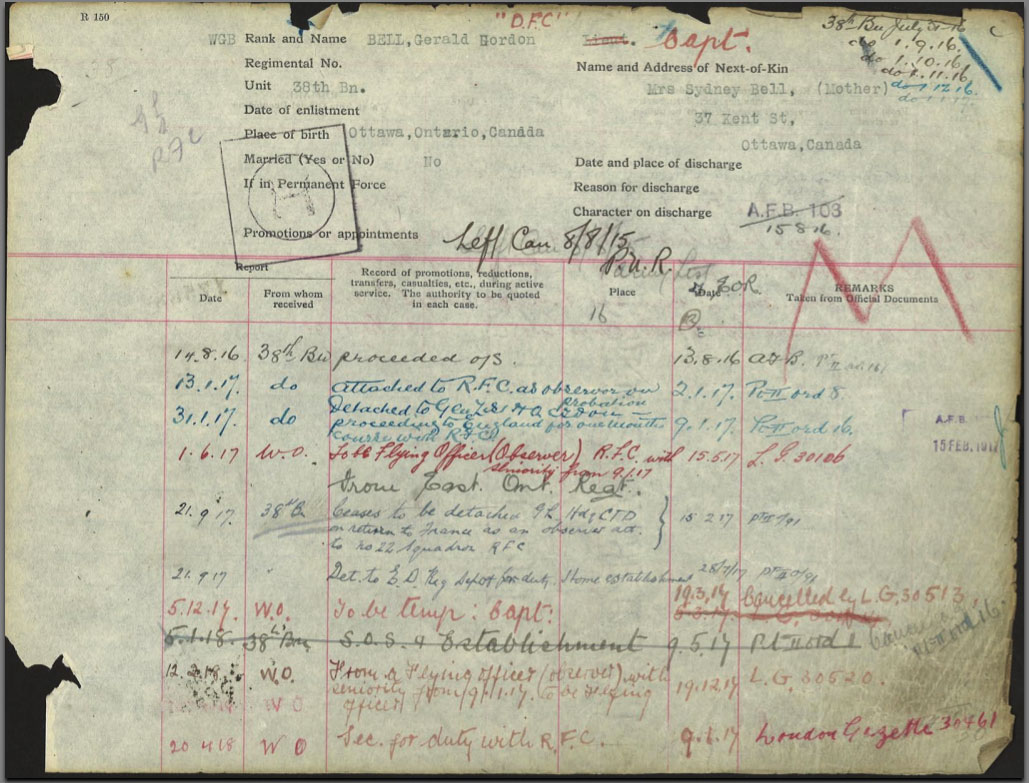 R 150
"D.F.C"
38th Bn July 31-16
do 1.9.16.
do 1.10.16.
do 1.11.16
do 1.12.16.
do 1.1.17.
C
WGB Rank and Name BELL,Gerald Gordon Lieut. Capt.
Regimental No.
Name and Address of Next-of-Kin
Unit 38th Bn.
Mrs Sydney Bell, (Mother)
Date of enlistment
37 Kent St,
Place of birth Ottawa,Ontario,Canada
Ottawa,Canada
RFC
Married (Yes or No) No
Date and place of discharge
If in Permanent Force
Reason for discharge
H
Character on discharge A.F.B. 103
15 8 16.
Promotions or appointments Left Can 8/8/15
P.M.R.
Report
Date
From whom received
Record of promotions, reductions, transfers, casualties, etc., during active service. The authority to be quoted in each case.
Place
16
Date
REMARKS
Taken from Official Documents
M
14.8.16 38th Bn proceeded o/s. 13.8.16
13.1.17. do attached to R.F.C. as observor on probation 2.1.17. Pt II ord 8
31.1.17. do Detached to
proceeding to England for one months course with R.F.C. 9.1.17. Pt II ord 16.
A.F.B.
15 FEB. 1917
1.6.17 W.O. To be Flying Officer (Observer) R.F.C. with seniority from 9.1.17 15.5.17 L.G. 30106
From East. Ont. Regt.
21.9.17. 38th Bn Ceases to be detached Hdq CTD
on return to France as an observer att.
to no 22 Squadron RFC 15 2 17 pt II /91
21.9.17 " Det. to E.O. Reg Depot for duty. Home establishment 28/7/17 pt II o/91
5.12.17. W.O. To be temp: Capt: 19.3.17 Cancelled by L.G. 30513.
5.1.18. 38th Bn S.O.S. of Establishment 9.5.17 Pt II ord 1
Pt II ord 16.
W.O. From a Flying officer (observer) with
seniority from 9.1.17. to be Flying
officer 19.12.17 L.G. 30520.
W O
20 4 18 W O Sec. for duty with R.F.C. 9.1.17 London Gazette 30461